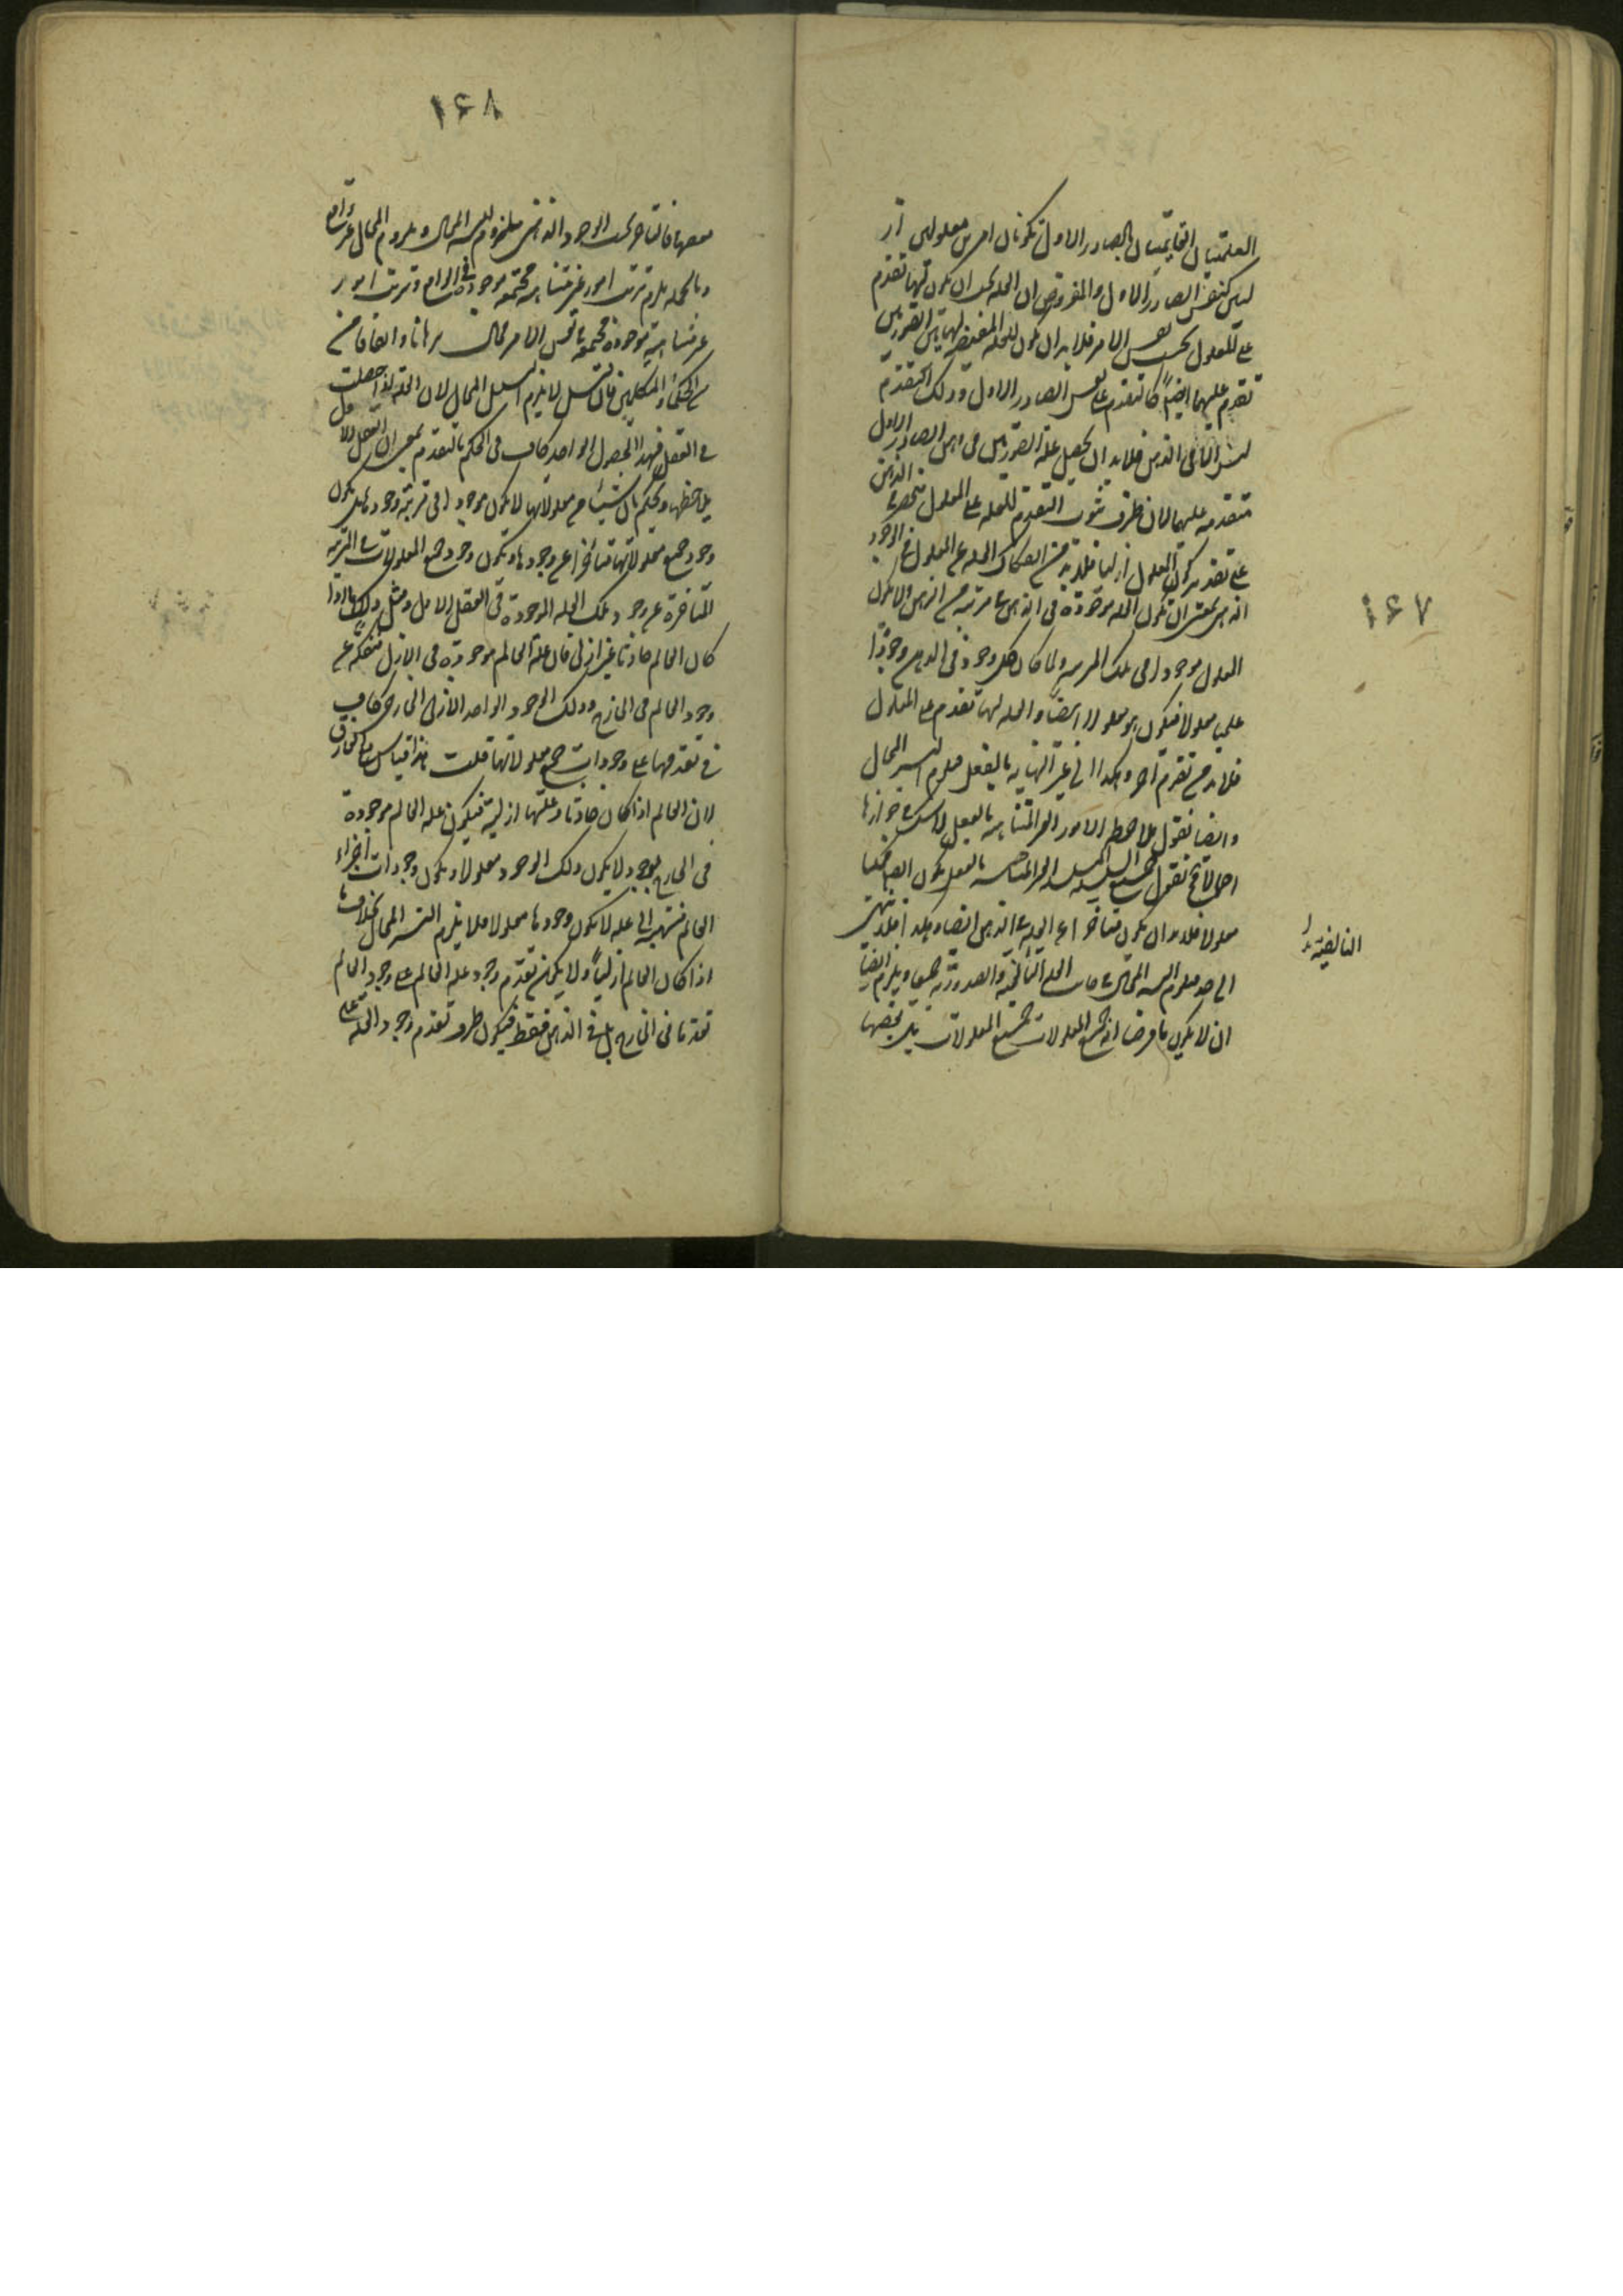 ۱۶۷
العلميتان القايمتان بالصادر الاول تكونان امرين معلولين از
ليس كنفس الصادر الاول والمفروض ان العلة يجب ان يكون لها تقدم
على المعلول بحسب نفس الامر فلا بد ان يكون للعلة المقتضية لهاتين الصورتين
تقدم عليهما ايضاً كما تتقدم على نفس الصادر الاول وذلك التقدم
ليس الا في الذهن فلا بد ان يحصل علة الصورتين في ذهن الصادر الاول
متقدمة عليهما لان ظرف ثبوت التقدم للعلة على المعلول منحصر في الذهن
على تقدير كون المعلول ازليا فلا بد من انفكاك العلة عن المعلول في الوجود
الذهني بمعنى ان تكون العلة موجودة في الذهن في مرتبة من الذهن ولا يكون
المعلول موجودا في تلك المرتبة ولما كان كل وجود في الذهن وجودا
علميا معلولا فيكون هو معلولا ايضا والعلة لها تقدم على المعلول
فلا بد من تقدم آخر وهكذا الى غير النهاية بالفعل فيلزم التسلسل المحال
وايضا نقول ملاحظة الامور الغير المتناهية بالفعل لا شك في جوازها
اجمالا فح نقول جميع السلسلة الغير المتناهية بالفعل يكون ايضا ممكنا
معلولا فلا بد ان يكون متاخرا عن العلة في الذهن ايضا وهكذا فلا ينتهي
التاليفية بدل
الى حد فيلزم التسلسل المحال في جانب العلل التاليفية والصدورية جميعا ويلزم ايضا
ان لا يكون ما فرضنا انه جميع المعلولات جميع المعلولات بل بعضها
۱۶۸
معها فالتاخر بحسب الوجود الذهني ملزوم للتسلسل المحال وملزوم المحال غير
وبالجملة يلزم ترتب امور غير متناهية مجتمعة موجودة في الواقع وترتب امور
غير متناهية موجودة مجتمعة في نفس الامر محال برهانا واتفاقا من
من الحكماء والمتكلمين فان قلت لا يلزم التسلسل المحال لان العلة اذا حصلت
في العقل فهذا الحصول الواحد كاف في الحكم بالتقدم بمعنى ان العقل الاول
يلاحظها ويحكم بان شيئا من معلولاتها لا يكون موجودا في مرتبة وجودها بل يكون
وجود جميع معلولاتها متاخرا عن وجودها ويكون وجود جميع المعلولات في المرتبة
المتاخرة عن وجود تلك العلة الموجودة في العقل الاول ومثل ذلك ما اذا
كان العالم حادثا غير ازلي فان علة العالم موجودة في الازل منفكة عن
وجود العالم في الخارج وذلك الوجود الواحد الازلي الخارجي كاف
في تقدمها على وجودات جميع معلولاتها قلت هذا قياس مع الفارق
لان العالم اذا كان حادثا وعلتها ازلية فيكون علة العالم موجودة
في الخارج بوجود لا يكون ذلك الوجود معلولا ويكون وجودات اجزاء
العالم منتهية الى علة لا يكون وجودها معلولا فلا يلزم التسلسل المحال بخلاف ما
اذا كان العالم ازلياً ولا يمكن تقدم وجود علة العالم على وجود العالم
تقدما في الخارج بل في الذهن فقط فيكون ظرف تقدم وجود العلة على